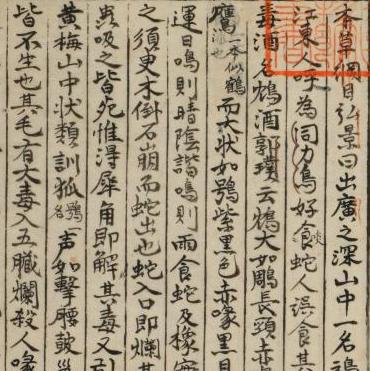 本草綱目弘景曰出廣之深山中一名鴆
江東人呼為同力鳥好食蛇人誤食其
毒酒名鴆酒郭璞云鴆大如雕長頸赤
鷹一本似鶴而大状如鴞紫黒色赤喙黒目
運日鳴則晴陰諧鳴則雨食蛇及橡実
之須臾木倒石崩而蛇出也蛇入口即爛其
虫吸之皆死惟得犀角即解其毒又
黄梅山中状類訓狐鴞名声如撃腰鼓巣
皆不生也其毛有大毒入五臓爛殺人喙